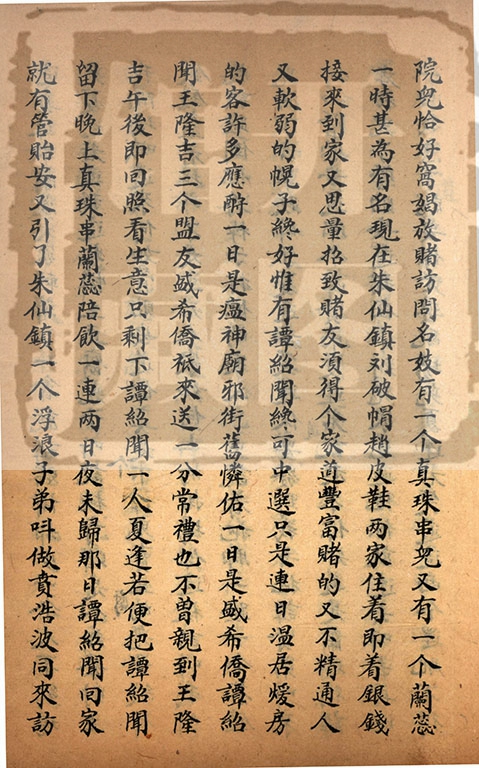 院兠恰好窩娼放賭訪問名妓有一个真珠串兠又有一个蘭蕊
一時甚為有名現在朱仙鎮刘破帽趙皮鞋两家住着即着銀錢
接來到家又思量招致賭友湏得个家道豐富賭的又不精通人
又軟弱的幌子纔好惟有譚紹聞纔可中選只是連日温居煖房
的客許多應酧一日是瘟神廟邪街舊憐佑一日是盛希僑譚紹
聞王隆吉三个盟友盛希僑祇來送一分常禮也不曽親到王隆
吉午後即回照看生意只剩下譚紹聞一人夏逢若便把譚紹聞
留下晚上真珠串蘭蕊陪飲一連两日夜未歸那日譚紹聞回家
就有管貽安又引了朱仙鎮一个浮浪子弟呌做賁浩波同來訪